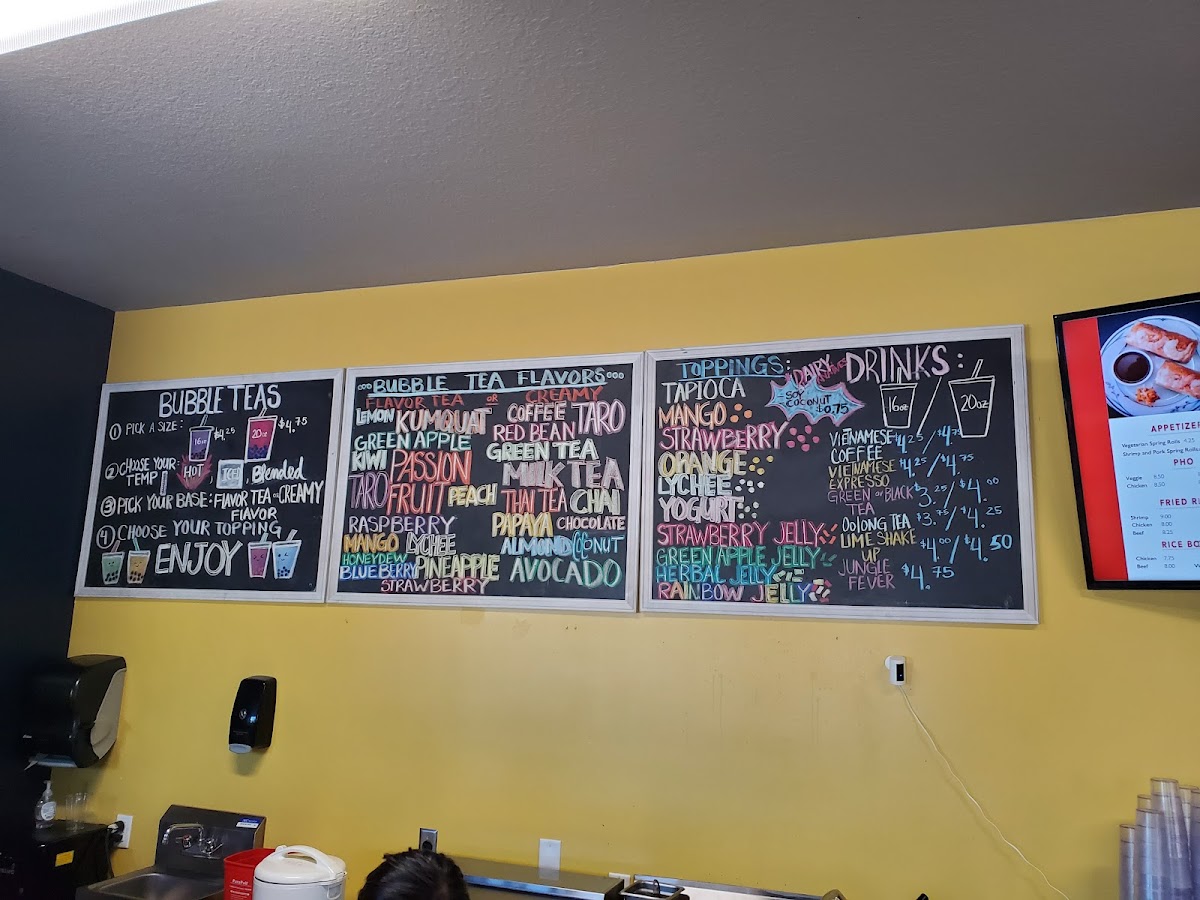 BUBBLE TEAS
① PICK A SIZE: 16oz $4.25 20oz $4.75
② CHOOSE YOUR TEMP: HOT, ICED, Blended
③ PICK YOUR BASE: FLAVOR TEA OR CREAMY
FLAVOR FLAVOR
④ CHOOSE YOUR TOPPING
ENJOY
BUBBLE TEA FLAVORS
FLAVOR TEA OR CREAMY
LEMON KUMQUAT
GREEN APPLE
KIWI PASSION
TARO FRUIT PEACH
RASPBERRY
MANGO LYCHEE
HONEYDEW
BLUEBERRY PINEAPPLE
STRAWBERRY
COFFEE TARO
RED BEAN
GREEN TEA
MILK TEA
THAI TEA CHAI
PAPAYA CHOCOLATE
ALMOND COCONUT
AVOCADO
TOPPINGS:
TAPIOCA
MANGO
STRAWBERRY
ORANGE
LYCHEE
YOGURT
STRAWBERRY JELLY
GREEN APPLE JELLY
HERBAL JELLY
RAINBOW JELLY
DAIRY
- SOY
COCONUT
$0.75
DRINKS:
16oz / 20oz
VIETNAMESE COFFEE $4.25/$4.75
VIETNAMESE EXPRESSO $4.25/$4.75
GREEN OR BLACK TEA $3.25/$4.00
OOLONG TEA $3.75/$4.25
LIME SHAKE UP $4.00/$4.50
JUNGLE FEVER $4.75
APPETIZER
Vegetarian Spring Rolls 4.25
Shrimp and Pork Spring Rolls
PHO
Veggie 8.50
Chicken 8.50
FRIED RI
Shrimp 9.00
Chicken 8.00
Beef 8.25
RICE BO
Chicken 7.75
Beef 8.00